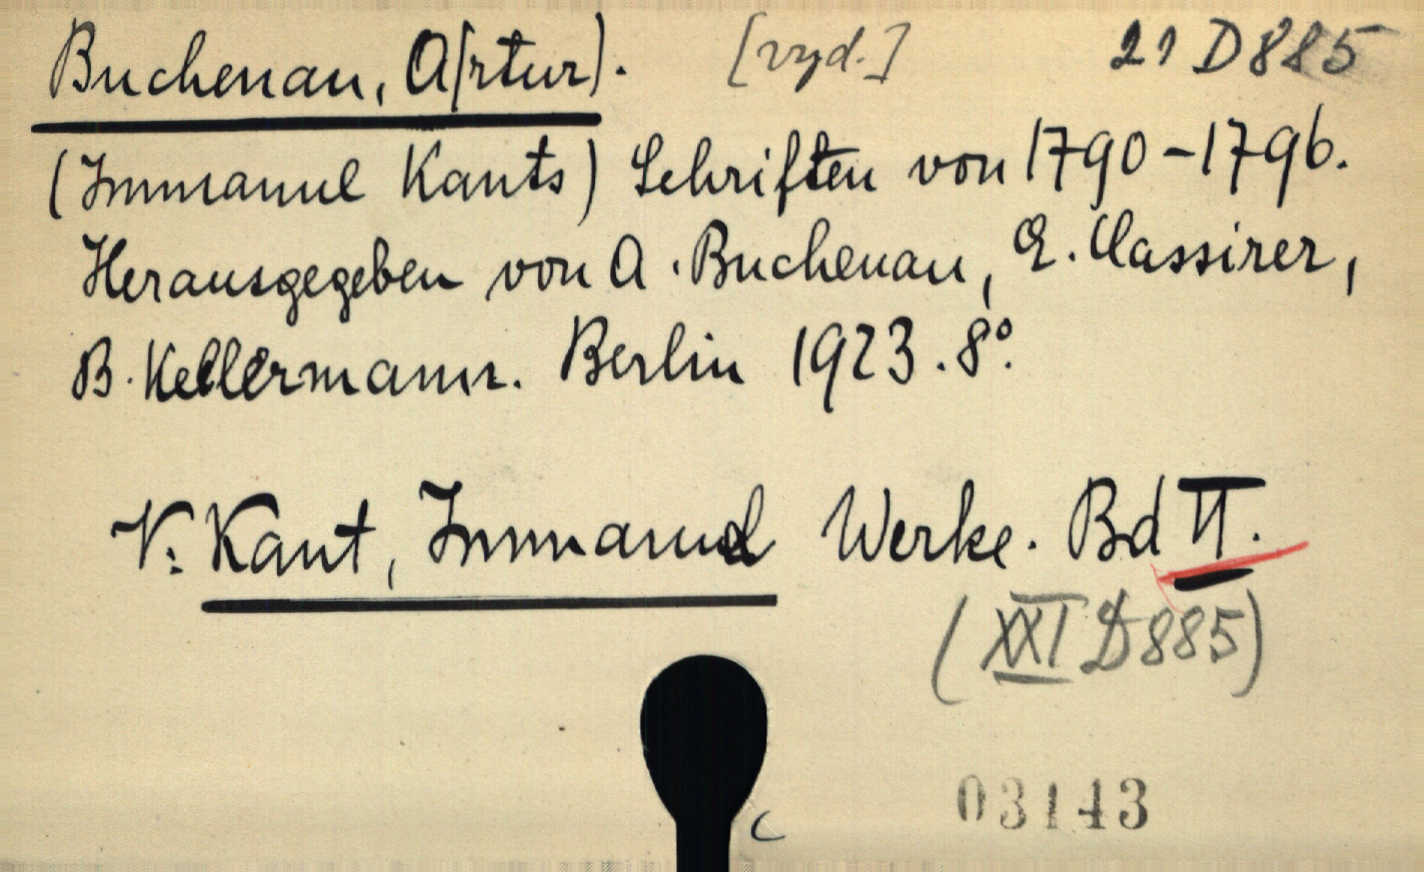 Buchenau, A(rtur). [vyd.] 21 D 885
(Immanuel Kants) Schriften von 1790-1796.
Herausgegeben von A. Buchenau, E. Cassirer,
B. Kellermann. Berlin 1923. 8°.
V: Kant, Immanuel Werke. Bd II.
(XXI D 885)
03143